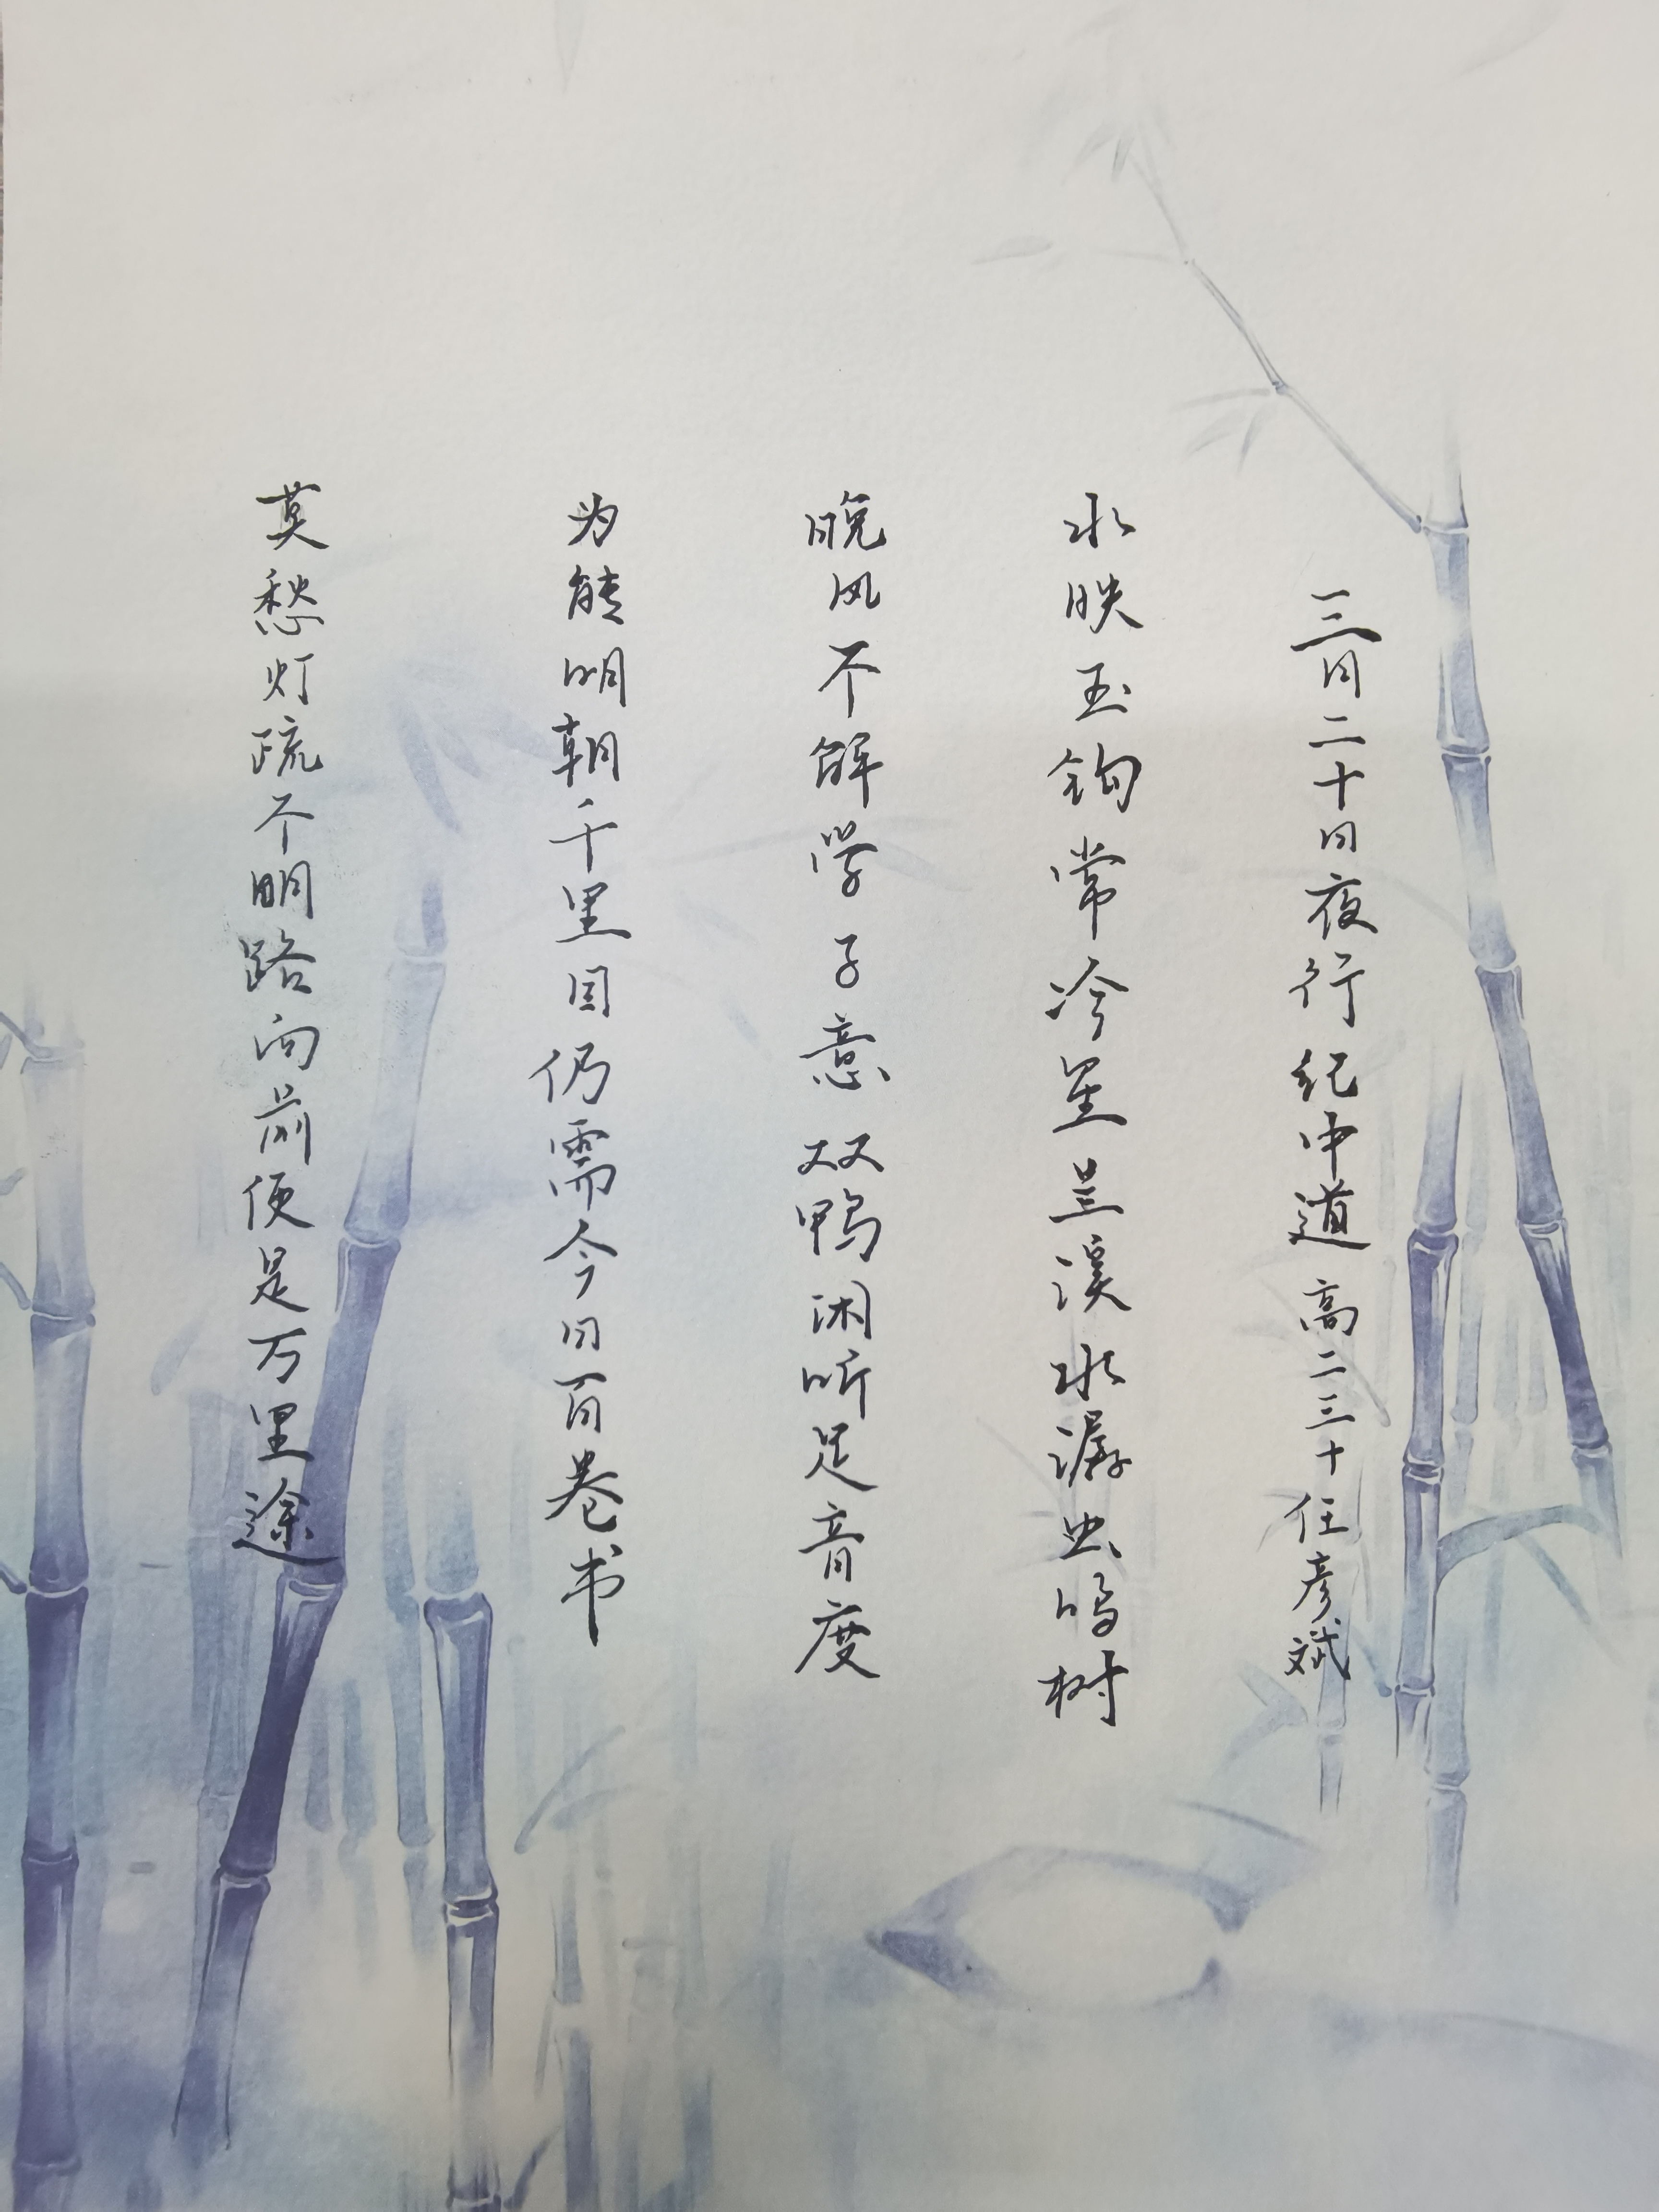 三月二十日夜行纪中道 高二三十 任彦斌
水映玉钩常冷星呈溪水潺虫鸣树
晚风不解学子意双鸭闲听足音度
为能明朝千里目仍需今日百卷书
莫愁灯疏不明路向前便是万里途